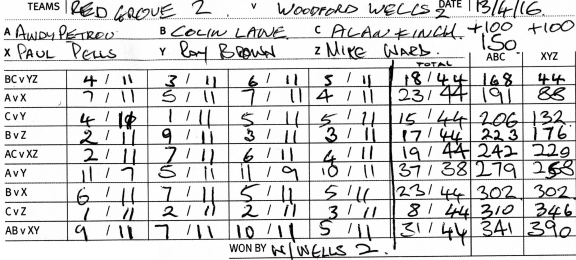 TEAMS RED GROVE 2. V WOODFORD WELLS 2 DATE 13/4/16.
A ANDY PETROU B COLIN LANE C ALAN FINCH. +100 +100
X PAUL PELLS Y RAY BROWN Z MIKE WARD. 150 ABC XYZ
TOTAL
BC v YZ 4 / 11 3 / 11 6 / 11 5 / 11 18 / 44 168 44
A v X 7 / 11 5 / 11 7 / 11 4 / 11 23 / 44 191 88
C v Y 4 / 11 1 / 11 5 / 11 5 / 11 15 / 44 206 132
B v Z 2 / 11 9 / 11 3 / 11 3 / 11 17 / 44 223 176
AC v XZ 2 / 11 7 / 11 6 / 11 4 / 11 19 / 44 242 220
A v Y 11 / 7 5 / 11 11 / 9 10 / 11 37 / 38 279 258
B v X 6 / 11 7 / 11 5 / 11 5 / 11 23 / 44 302 302
C v Z 1 / 11 2 / 11 2 / 11 3 / 11 8 / 44 310 346
AB v XY 9 / 11 7 / 11 10 / 11 5 / 11 31 / 44 341 390
WON BY W/WELLS 2.